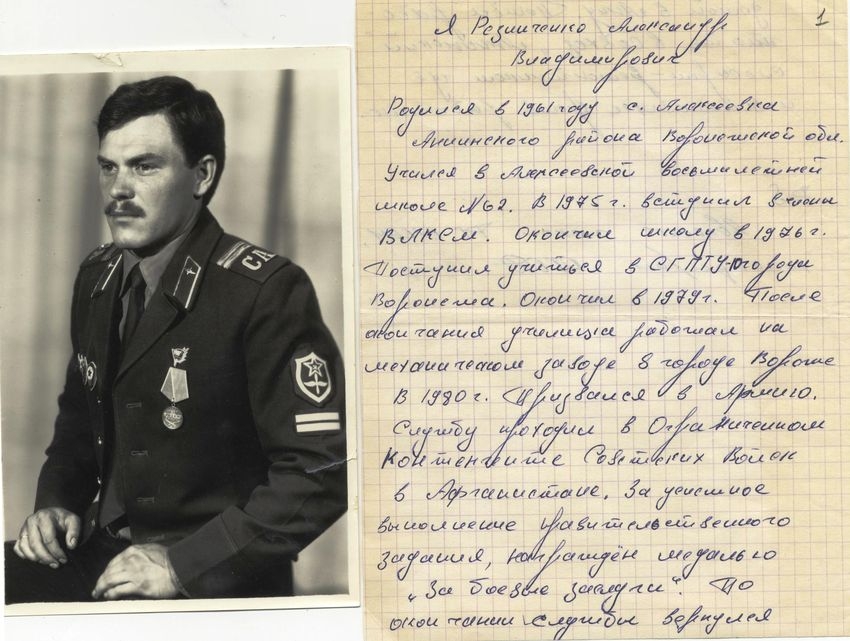 СА
1
Я Резниченко Александр
Владимирович
Родился в 1961 году с. Алексеевка
Аннинского района Воронежской обл.
Учился в Алексеевской восьмилетней
школе №62. В 1975 г. вступил в члены
ВЛКСМ. Окончил школу в 1976 г.
Поступил учиться в СГПТУ-10 города
Воронежа. Окончил в 1979 г. После
окончания училища работал на
механическом заводе в городе Вороне
В 1980 г. Призвался в Армию.
Службу проходил в Ограниченном
Контенгенте Советских Войск
в Афганистане. За успешное
выполнение правительственного
задания, награждён медалью
„За боевые заслуги". По
окончании службы вернулся